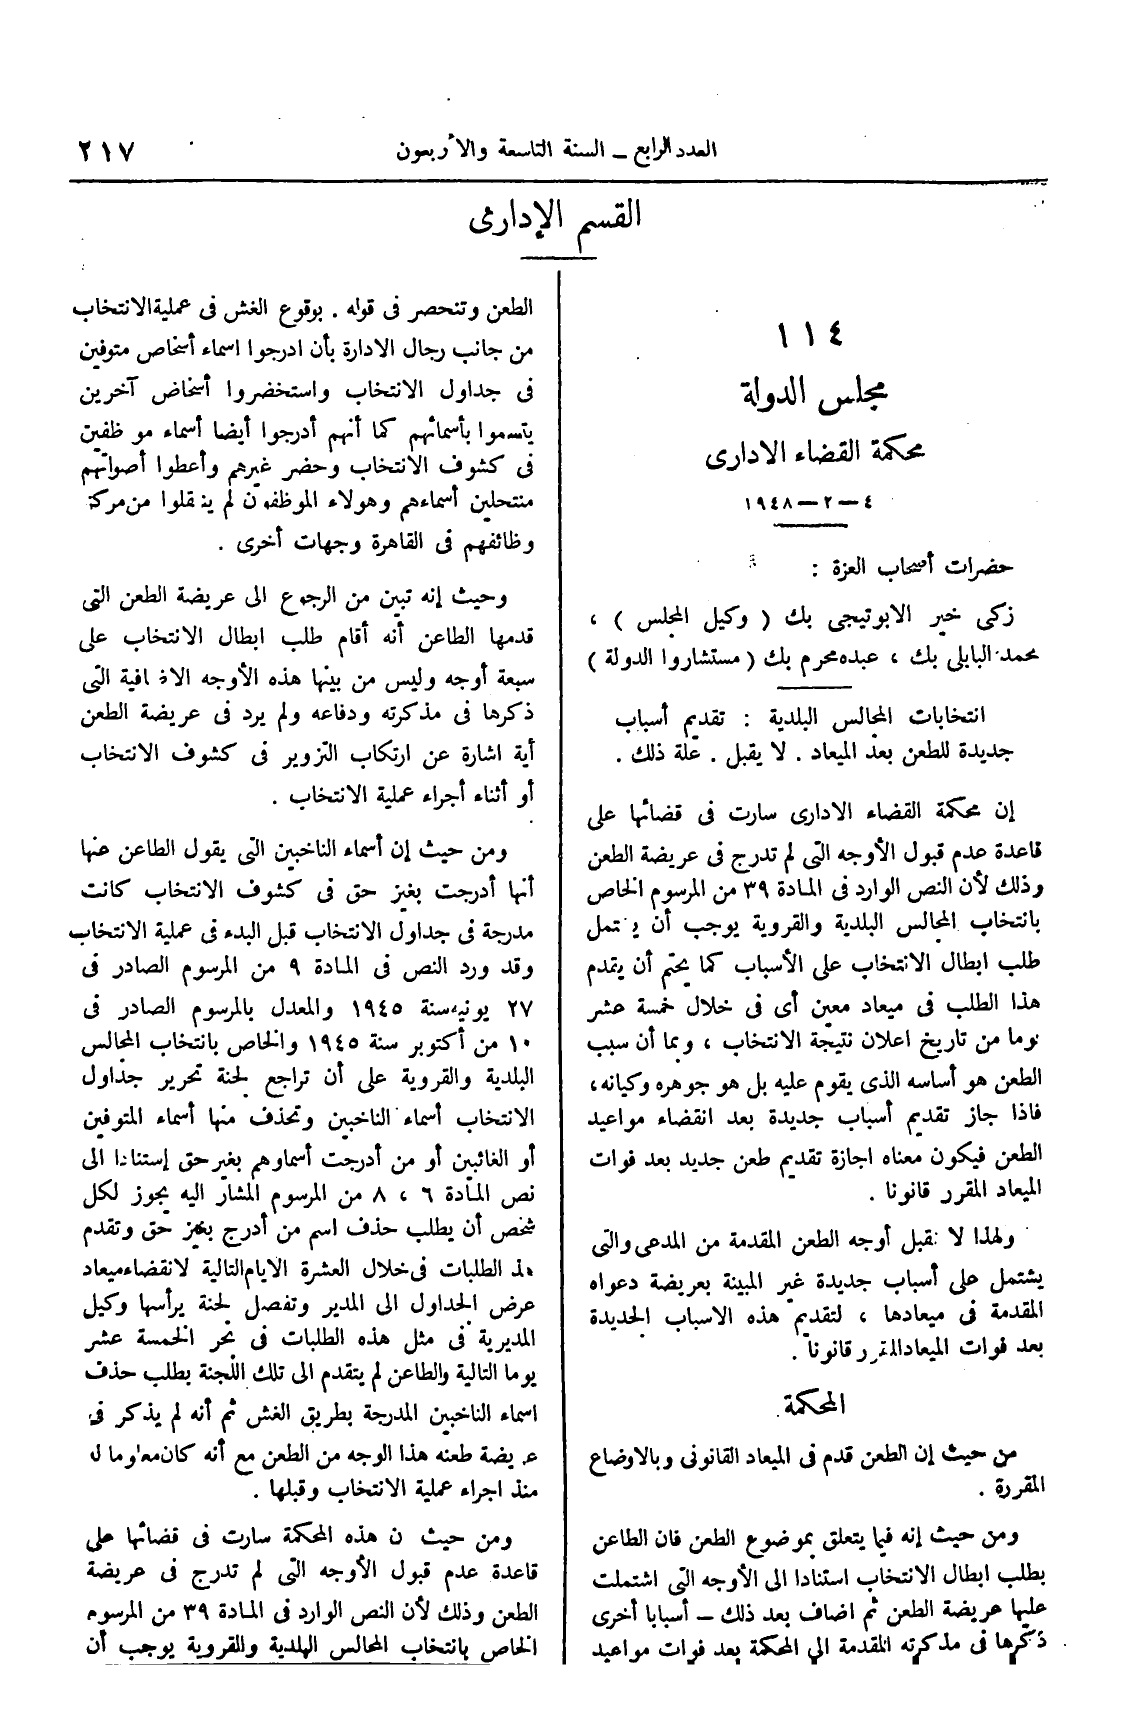 العدد الرابع ــ السنة التاسعة والأربعون
٢١٧
القسم الإدارى
١١٤
مجلس الدولة
محكمة القضاء الادارى
٤ – ٢ – ١٩٤٨
حضرات أصحاب العزة :
زكى خير الابوتيجى بك ( وكيل المجلس ) ،
محمد البابلى بك ، عبده محرم بك ( مستشاروا الدولة )
انتخابات المجالس البلدية : تقديم أسباب
جديدة للطعن بعد الميعاد . لا يقبل . علة ذلك .
إن محكمة القضاء الادارى سارت فى قضائها على
قاعدة عدم قبول الأوجه التى لم تدرج فى عريضة الطعن
وذلك لأن النص الوارد فى المادة ٣٩ من المرسوم الخاص
بانتخاب المجالس البلدية والقروية يوجب أن يشتمل
طلب ابطال الانتخاب على الأسباب كما يحتم أن يقدم
هذا الطلب فى ميعاد معين أى فى خلال خمسة عشر
يوما من تاريخ اعلان نتيجة الانتخاب ، وبما أن سبب
الطعن هو أساسه الذى يقوم عليه بل هو جوهره وكيانه ،
فاذا جاز تقديم أسباب جديدة بعد انقضاء مواعيد
الطعن فيكون معناه اجازة تقديم طعن جديد بعد فوات
الميعاد المقرر قانونا .
ولهذا لا تقبل أوجه الطعن المقدمة من المدعى والتى
يشتمل على أسباب جديدة غير المبينة بعريضة دعواه
المقدمة فى ميعادها ، لتقديم هذه الاسباب الجديدة
بعد فوات الميعاد المقرر قانونا .
المحكمة
من حيث إن الطعن قدم فى الميعاد القانونى وبالاوضاع
المقررة .
ومن حيث إنه فيما يتعلق بموضوع الطعن فان الطاعن
يطلب ابطال الانتخاب استنادا الى الأوجه التى اشتملت
عليها عريضة الطعن ثم اضاف بعد ذلك ــ أسبابا أخرى
ذكرها فى مذكرته المقدمة الى المحكمة بعد فوات مواعيد
الطعن وتنحصر فى قوله . بوقوع الغش فى عملية الانتخاب
من جانب رجال الادارة بأن ادرجوا اسماء أشخاص متوفين
فى جداول الانتخاب واستخضروا أشخاض آخرين
يتسموا بأسمائهم كما أنهم أدرجوا أيضا أسماء موظفين
فى كشوف الانتخاب وحضر غيرهم وأعطوا أصواتهم
منتحلين أسماءهم وهولاء الموظفون لم ينقلوا من مركز
وظائفهم فى القاهرة وجهات أخرى .
وحيث إنه تبين من الرجوع الى عريضة الطعن التى
قدمها الطاعن أنه أقام طلب ابطال الانتخاب على
سبعة أوجه وليس من بينها هذه الأوجه الاضافية التى
ذكرها فى مذكرته ودفاعه ولم يرد فى عريضة الطعن
أية اشارة عن ارتكاب التزوير فى كشوف الانتخاب
أو أثناء أجراء عملية الانتخاب .
ومن حيث إن أسماء الناخبين التى يقول الطاعن عنها
أنها أدرجت بغير حق فى كشوف الانتخاب كانت
مدرجة فى جداول الانتخاب قبل البدء فى عملية الانتخاب
وقد ورد النص فى المادة ٩ من المرسوم الصادر فى
٢٧ يونيه سنة ١٩٤٥ والمعدل بالمرسوم الصادر فى
١٠ من أكتوبر سنة ١٩٤٥ والخاص بانتخاب المجالس
البلدية والقروية على أن تراجع لجنة تحرير جداول
الانتخاب أسماء الناخبين وتحذف منها أسماء المتوفين
أو الغائبين أو من أدرجت أسماوهم بغير حق إستنادا الى
نص المادة ٦ ، ٨ من المرسوم المشار اليه يجوز لكل
شخص أن يطلب حذف اسم من أدرج بغير حق وتقدم
هذ الطلبات فى خلال العشرة الايام التالية لانقضاء ميعاد
عرض الجداول الى المدير وتفصل لجنة يرأسها وكيل
المديرية فى مثل هذه الطلبات فى بحر الخمسة عشر
يوما التالية والطاعن لم يتقدم الى تلك اللجنة بطلب حذف
اسماء الناخبين المدرجة بطريق الغش ثم أنه لم يذكر فى
عريضة طعنه هذا الوجه من الطعن مع أنه كان معلوما له
منذ اجراء عملية الانتخاب وقبلها .
ومن حيث ن هذه المحكمة سارت فى قضائها على
قاعدة عدم قبول الأوجه التى لم تدرج فى عريضة
الطعن وذلك لأن النص الوارد فى المادة ٣٩ من المرسوم
الخاص بانتخاب المجالس البلدية والقروية يوجب أن